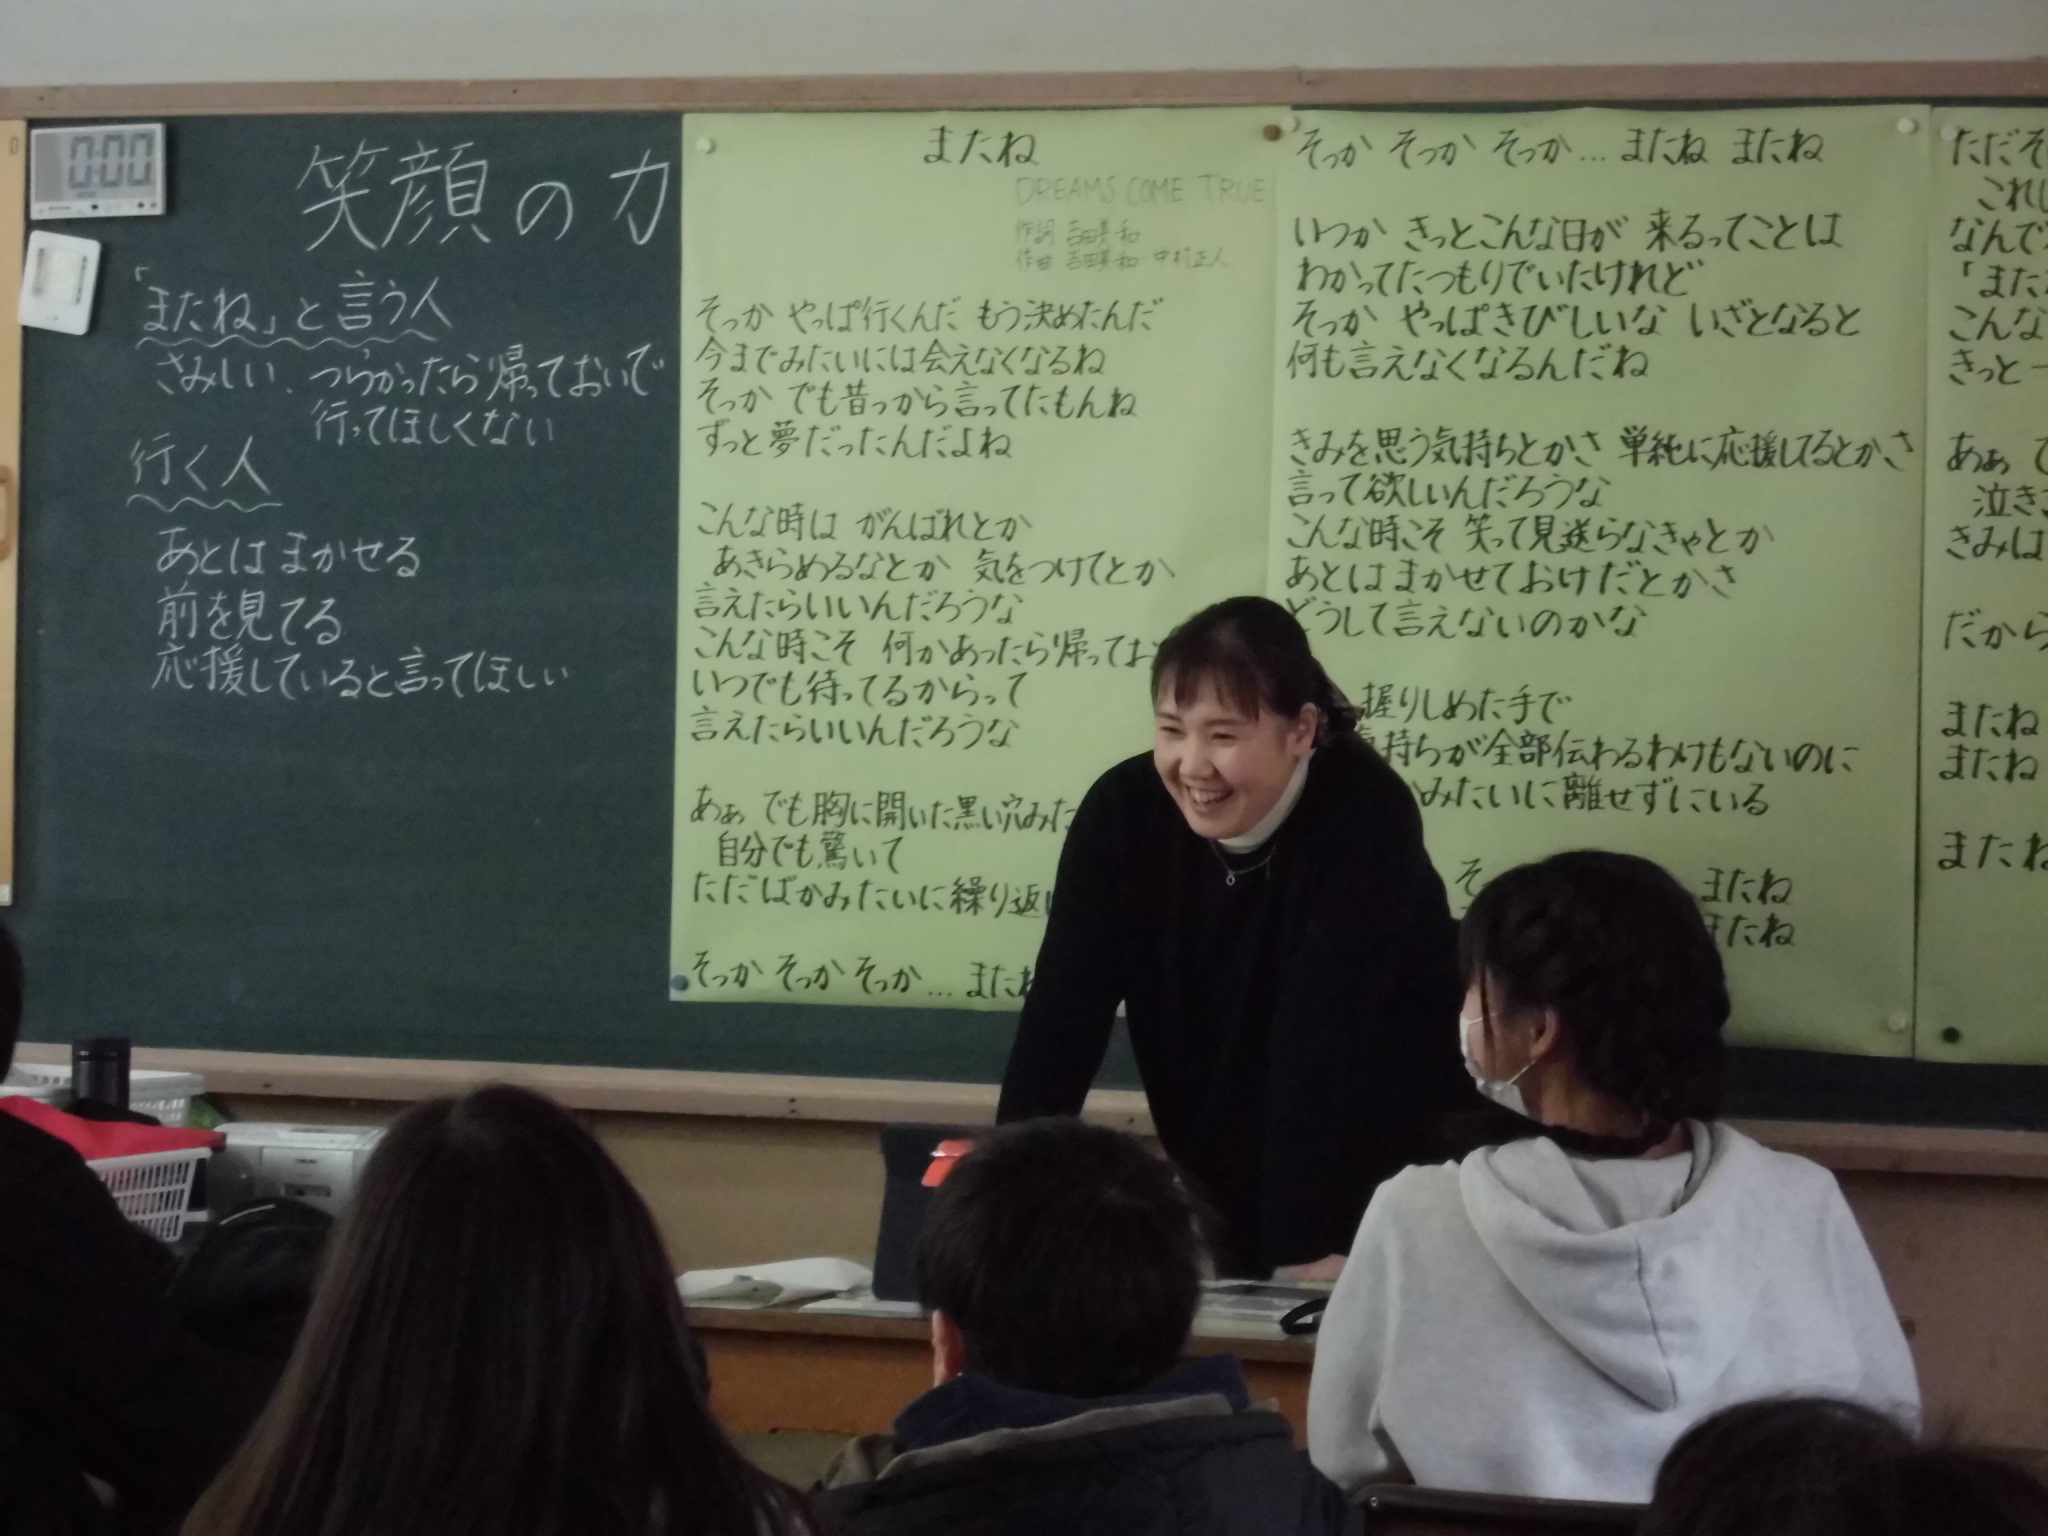 0:00
笑顔の力
「またね」と言う人
さみしい、つらかったら帰っておいで
行ってほしくない
行く人
あとはまかせる
前を見てる
応援していると言ってほしい
またね
DREAMS COME TRUE
作詞 吉田美和
作曲 吉田美和・中村正人
そっか やっぱ行くんだ もう決めたんだ
今までみたいには会えなくなるね
そっか でも昔っから言ってたもんね
ずっと夢だったんだよね
こんな時は がんばれとか
あきらめるなとか 気をつけてとか
言えたらいいんだろうな
こんな時こそ 何かあったら帰ってお
いつでも待ってるからって
言えたらいいんだろうな
あぁ でも胸に開いた黒い穴みた
自分でも驚いて
ただばかみたいに繰り返
そっか そっか そっか… またね
そっか そっか そっか… またね またね
いつか きっとこんな日が 来るってことは
わかってたつもりでいたけれど
そっか やっぱきびしいな いざとなると
何も言えなくなるんだね
きみを思う気持ちとかさ 単純に応援してるとかさ
言って欲しいんだろうな
こんな時こそ 笑って見送らなきゃとか
あとはまかせておけだとかさ
どうして言えないのかな
握りしめた手で
持ちが全部伝わるわけもないのに
みたいに離せずにいる
そ またね
またね
ただそ
これし
なんで
「また
こんな
きっと
あぁ で
泣き
きみは
だから
またね
またね
またね